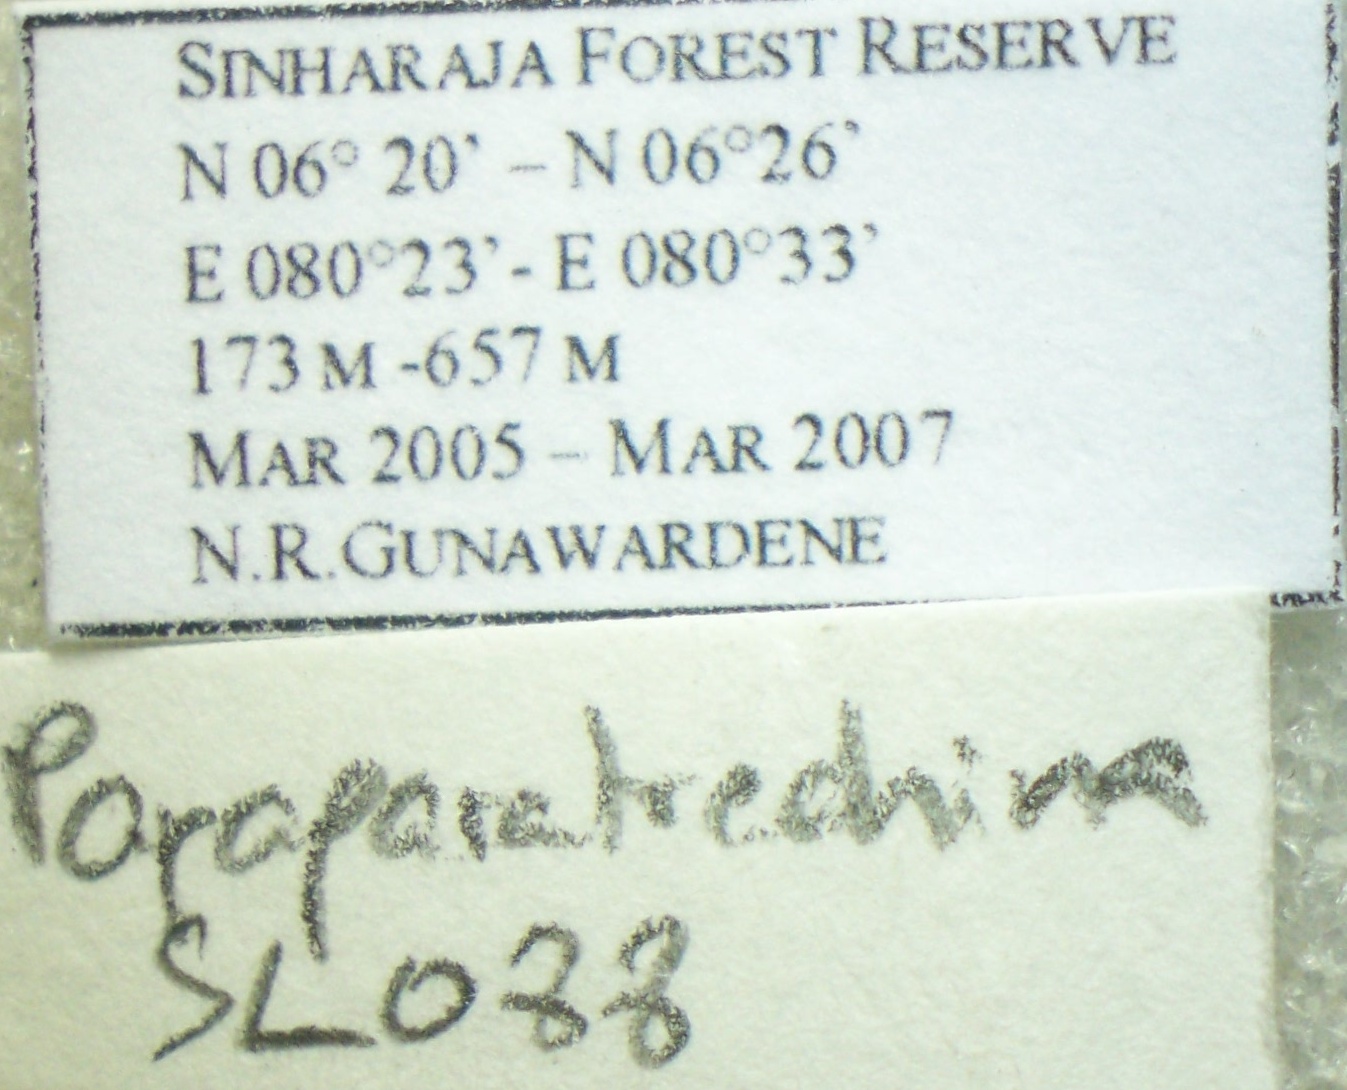 SINHARAJA FOREST RESERVE
N 06° 20’ – N 06°26’
E 080°23’- E 080°33’
173 M -657 M
MAR 2005 – MAR 2007
N.R.GUNAWARDENE
Paraparatrechina
SL033